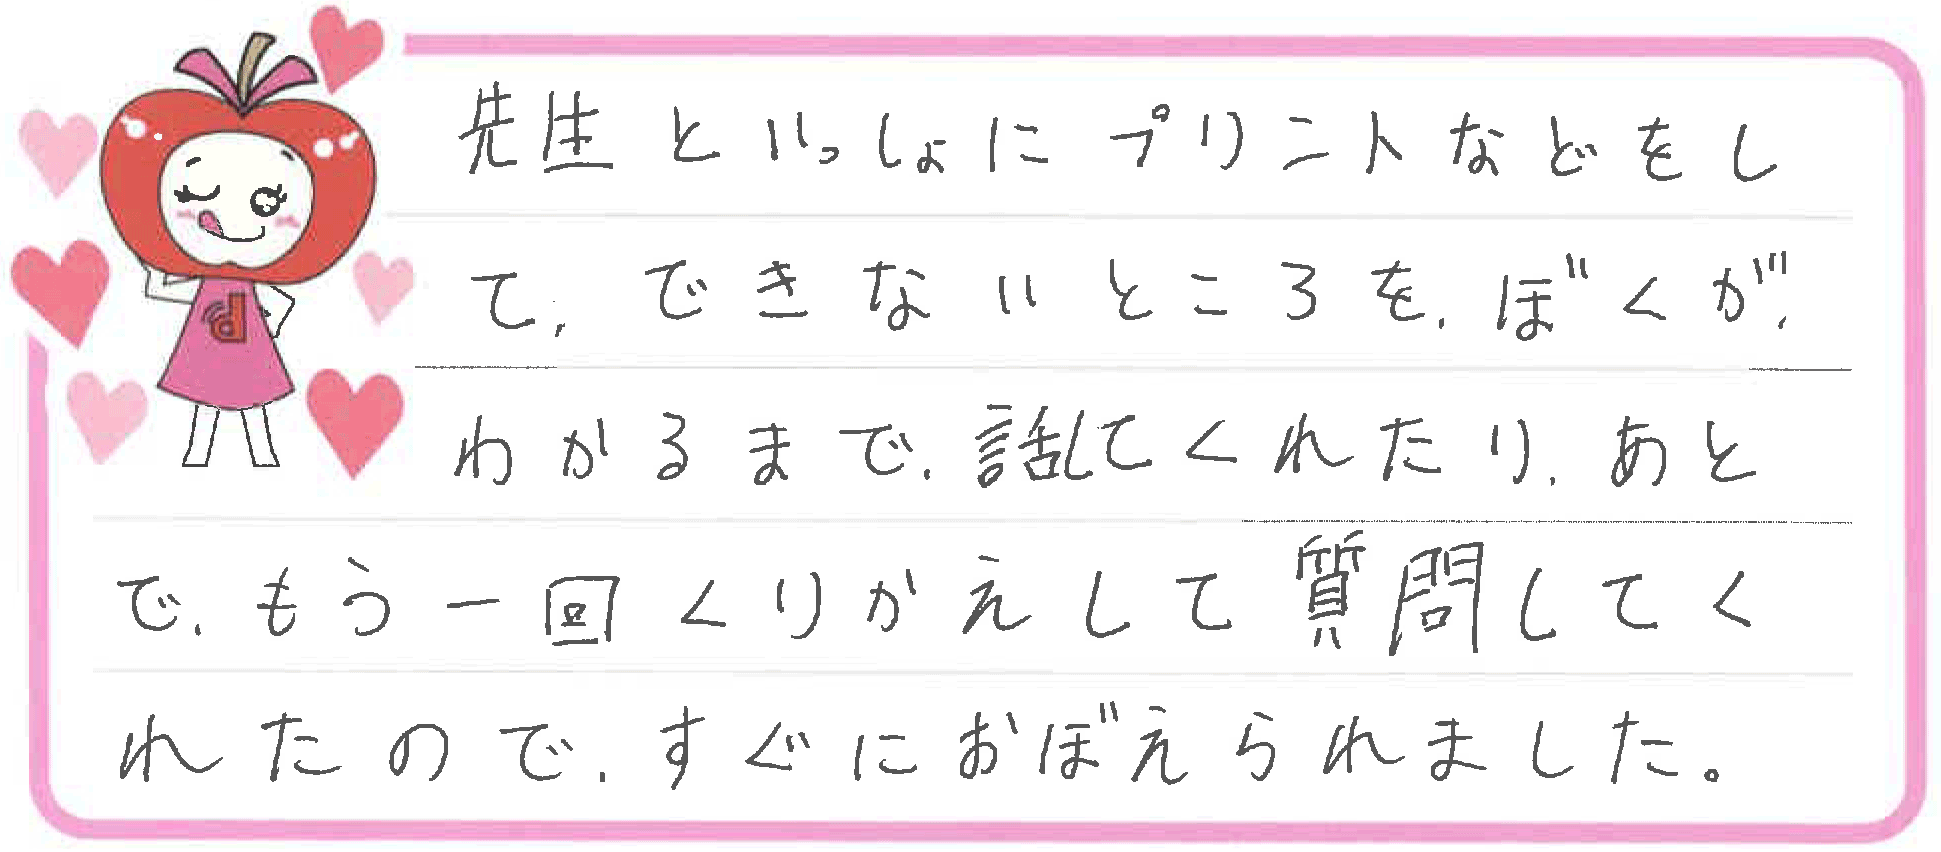 先生といっしょにプリントなどをし
て、できないところを、ぼくが、
わかるまで、話してくれたり、あと
で、もう一回くりかえして質問してく
れたので、すぐにおぼえられました。